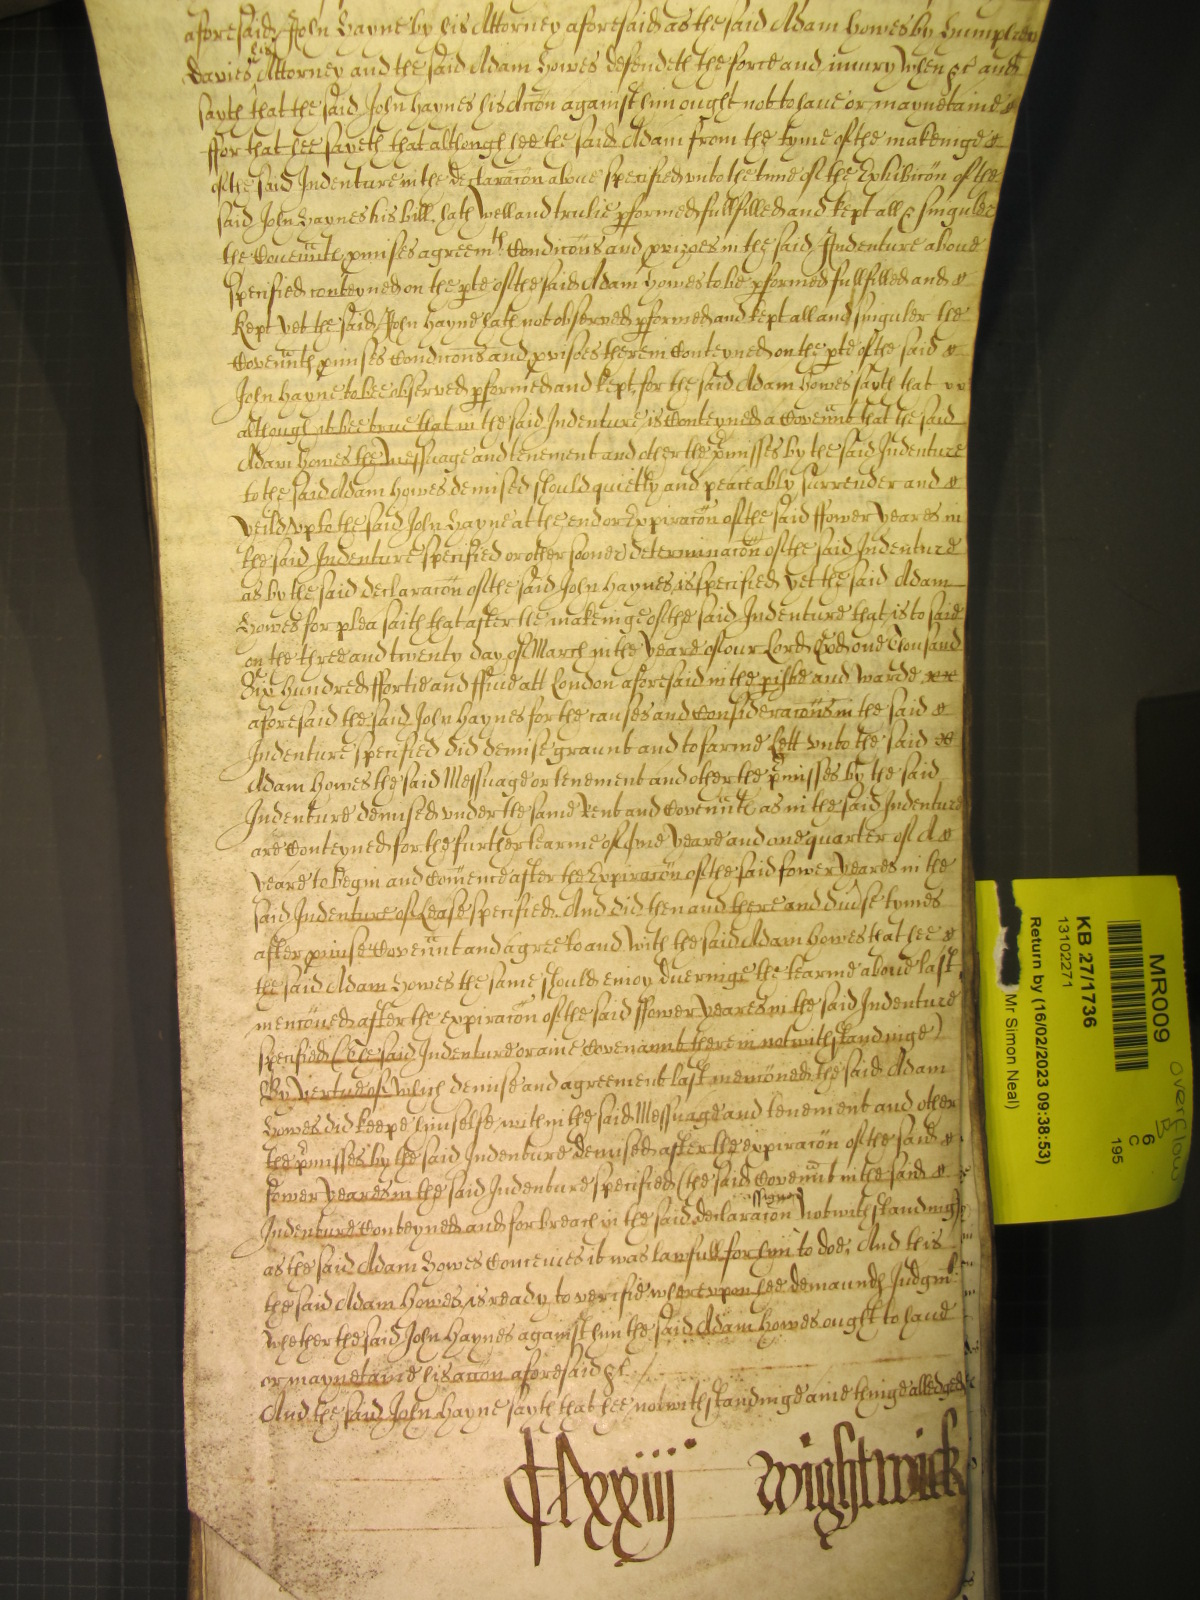 aforesaid John Hayne by his Attorney aforesaid as the said Adam Howes by Humphrey
Davies his Attorney and the said Adam Howes defendeth the force and iniury when &c and
sayth that the said John Haynes his Accon against him ought not to haue or maynetaine
ffor that hee sayeth that although hee the said Adam from the tyme of the makeinge
of the said Indenture in the declaracon aboue specified vnto the time of the Exhibicon of the
said John Haynes his bill hath well and trulie pformed fullfilled and kept all & singuler
the Couennts pmises agreemts Condicons and in the said Indenture aboue
specified conteyned on the pte of the said Adam Howes to be pformed fullfilled and
kept yet the said John Hayne hath not observed pformed and kept all and singuler the
Covennts pmises Condicons and therein Conteyned on the pte of the said
John Hayne to bee observed pformed and kept, for the said Adam Howes sayth that
although it bee true that in the said Indenture is Conteyned a Covennt that the said
Adam Howes the Messuage and tenement and other the pmisses by the said Indenture
to the said Adam Howes demised should quietly and peaceably surrender and
yeild vp to the said John Hayne at the end or Expiracon of the said ffower yeares in
the said Indenture specified or other sooner determinacon of the said Indenture
as by the said declaracon of the said John Haynes is specified yet the said Adam
Howes for plea saith that after the makeinge of the said Indenture that is to saie
on the three and twenty day of March in the yeare of our Lord God one thousand
Six hundred ffortie and ffiue att London aforesaid in the pishe and warde
aforesaid the said John Haynes for the causes and Consideracons in the said
Indenture specified did demise graunt and to farme Lett vnto the said
Adam Howes the said Messuage or tenement and other the pmisses by the said
Indenture demised vnder the same Rent and Covennts as in the said Indenture
are Conteyned for the further tearme of one yeare and one quarter of A
yeare to begin and Comence after the Expiracon of the said fower yeares in the
said Indenture of Lease specified. And did then and there and diuse tymes
after pmise Covennt and agree to and with the said Adam Howes that hee
the said Adam Howes the same should enioy dueringe the tearme aboue last
menconed after the expiracon of the said ffower yeares in the said Indenture
specified (the said Indenture or anie Covenannt therein notwithstandinge)
By vertue of which demise and agreement last menconed the said Adam
Howes did keepe himselfe within the said Messuage and tenement and other
the pmisses by the said Indenture demised after the expiracon of the said
fower yeares in the said Indenture specified (the said Covennt in the said
Indenture Conteyned and for breach in the said declaracon assigned notwithstandinge)
as the said Adam Howes Conceiues it was lawfull for him to doe, And this
the said Adam Howes is ready to verifie whereupon hee demaunds Judgmt
Whether the said John Haynes against him the said Adam Howes ought to haue
or maynetaine his accon aforesaid &c
And the said John Hayne sayth that hee notwithstandinge anie thinge alledged
xxiij wightwick
MR009
KB 27/1736
13102271
Return by (16/02/2023 09:38:53)
Mr Simon Neal)
6
C
195
overflow
B